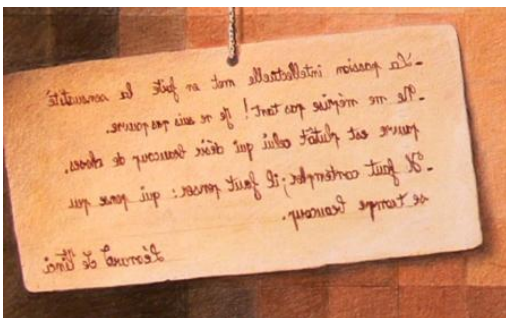 - La passion intellectuelle met en fuite la sensualité
- Ne me méprise pas tant ! Je ne suis pas pauvre.
pauvre est plutôt celui qui désire beaucoup de choses.
- Il faut contempler; il faut penser : qui pense peu
se trompe beaucoup.
Léonard de Vinci